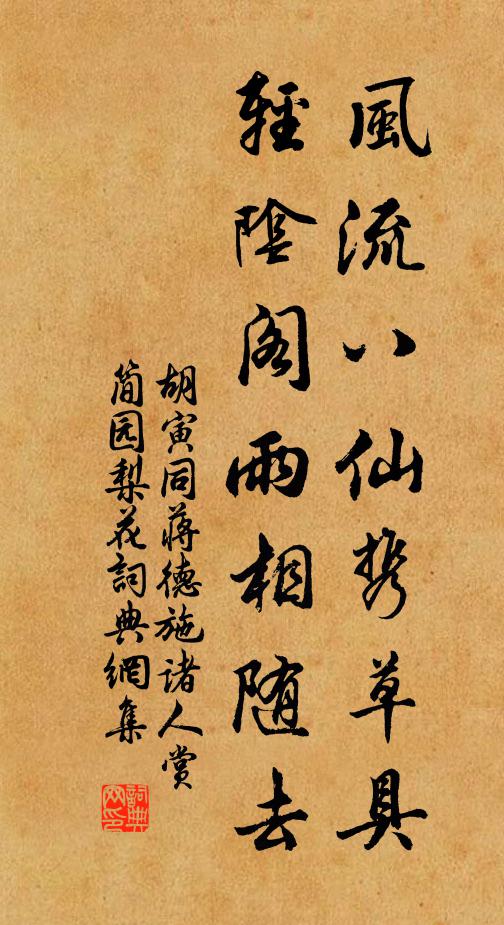 風流八仙携草具
輕陰閣雨相随去
胡寅同蔣德施諸人賞
簡园梨花詞典網集
詞典網印